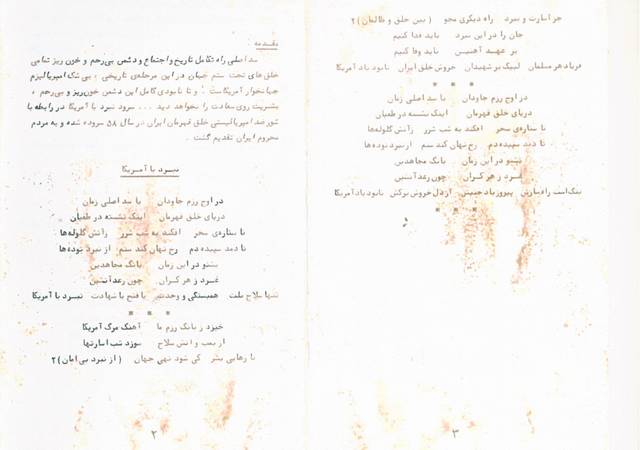 مقدمه
سد اصلی راه تکامل تاریخ و اجتماع و دشمن بی‌رحم و خون‌ریز تمامی
خلق‌های تحت ستم جهان در این مرحله‌ی تاریخی، بی‌شک امپریالیزم
جهانخوار آمریکاست. و تا نابودی کامل این دشمن خون‌ریز و بی‌رحم،
بشریت روی سعادت را نخواهد دید ... سرود نبرد با آمریکا در رابطه با
شور ضد امپریالیستی خلق قهرمان ایران در سال ۵۸ سروده شده و به مردم
محروم ایران تقدیم گشت.
نبرد با آمریکا
در اوج رزم جاودان با سد اصلی زمان
دریای خلق قهرمان اینک نشسته در طغیان
تا ستاره‌ی سحر افکند به شب شرر ز آتش گلوله‌ها
تا دمد سپیده دم رخ نهان کند ستم از نبرد توده‌ها
بشنو در این زمان بانگ مجاهدین
غرد ز هر کران چون رعد آتشین
تنها سلاح ملت همبستگی و وحدت یا فتح یا شهادت نبرد با آمریکا
* * *
خیزد ز بانگ رزم ما آهنگ مرگ آمریکا
از بمب و آتش سلاح سوزد شب اسارتها
تا رهایی بشر کی شود تهی جهان (از نبرد بی‌امان) ۲
۲
جز اسارت و نبرد راه دیگری مجو (بین خلق و ظالمان) ۲
جان را در این نبرد باید فدا کنیم
بر عهد آهنین باید وفا کنیم
فریاد هر مسلمان لبیک بر شهیدان خروش خلق ایران نابود باد آمریکا
* * *
در اوج رزم جاودان با سد اصلی زمان
دریای خلق قهرمان اینک نشسته در طغیان
تا ستاره‌ی سحر افکند به شب شرر ز آتش گلوله‌ها
تا دمد سپیده دم رخ نهان کند ستم از نبرد توده‌ها
بشنو در این زمان بانگ مجاهدین
غرد ز هر کران چون رعد آتشین
پیروز باد جنبش از دل خروش برکش نابود باد آمریکا
* * *
۳